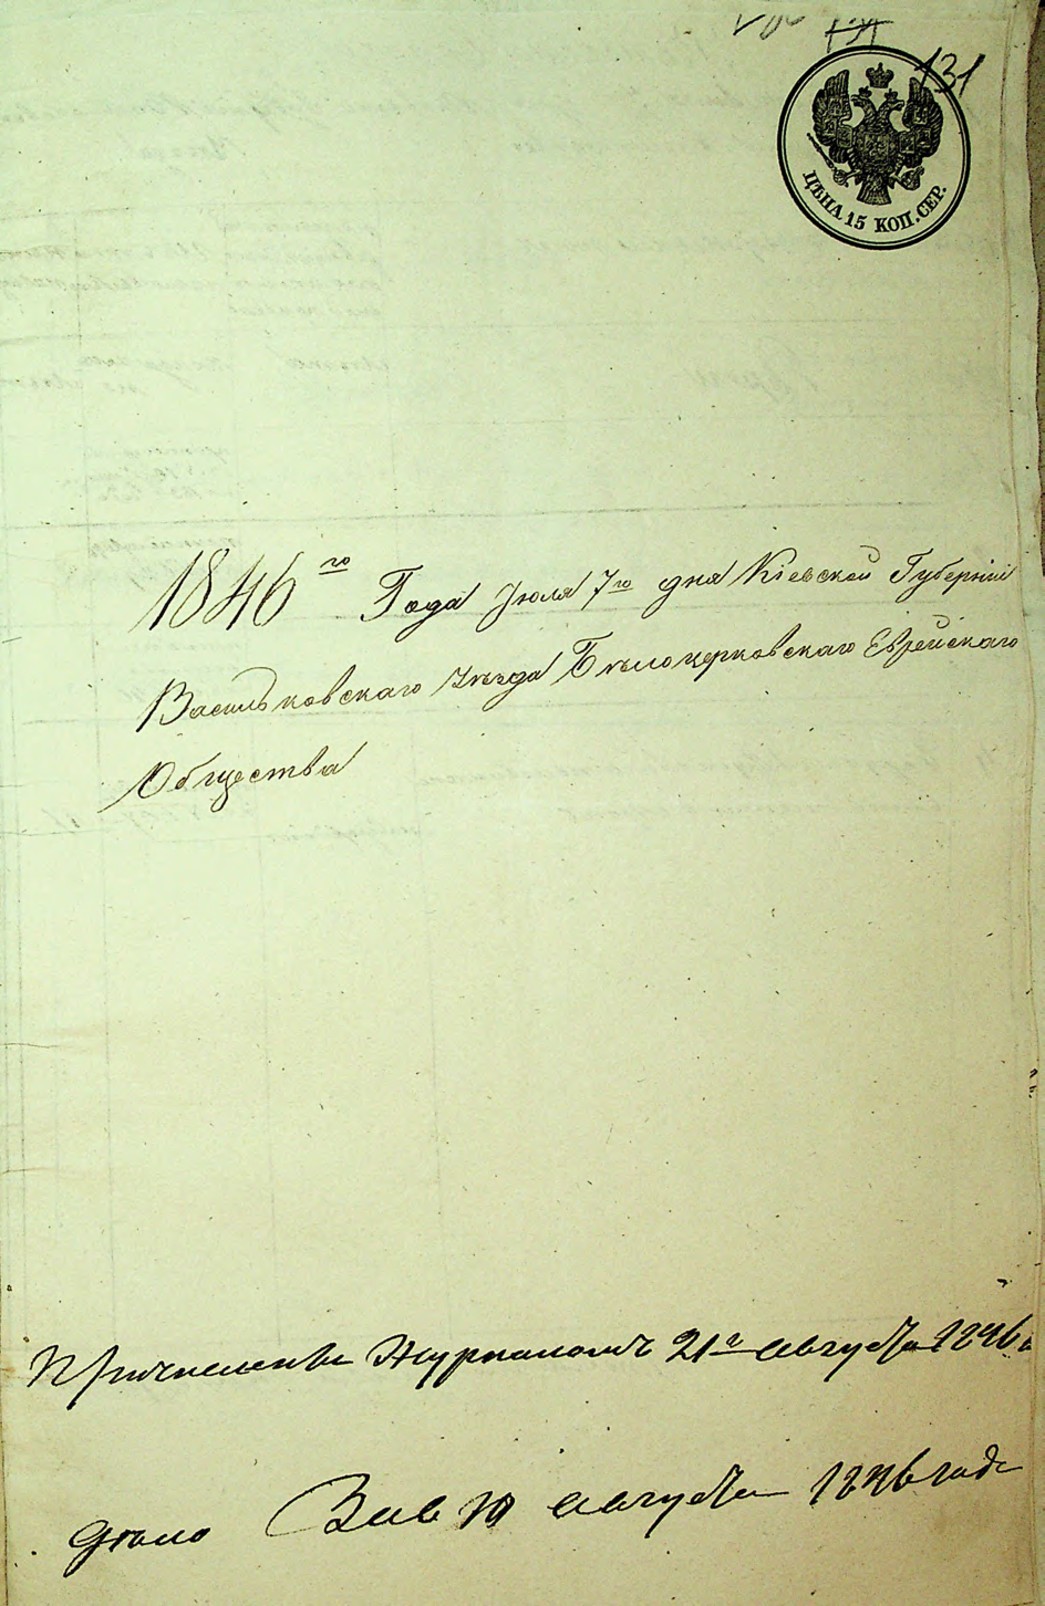 131
ЦѢНА 15 КОП. СЕР.
1846го Года Июля 7го дня Кіевской Губерніи
Васильковскаго Уѣзда Бѣлоцерковскаго Еврейскаго
Общества
Причислены Журналомъ 21го августа 1846
дѣло августа 1846 года